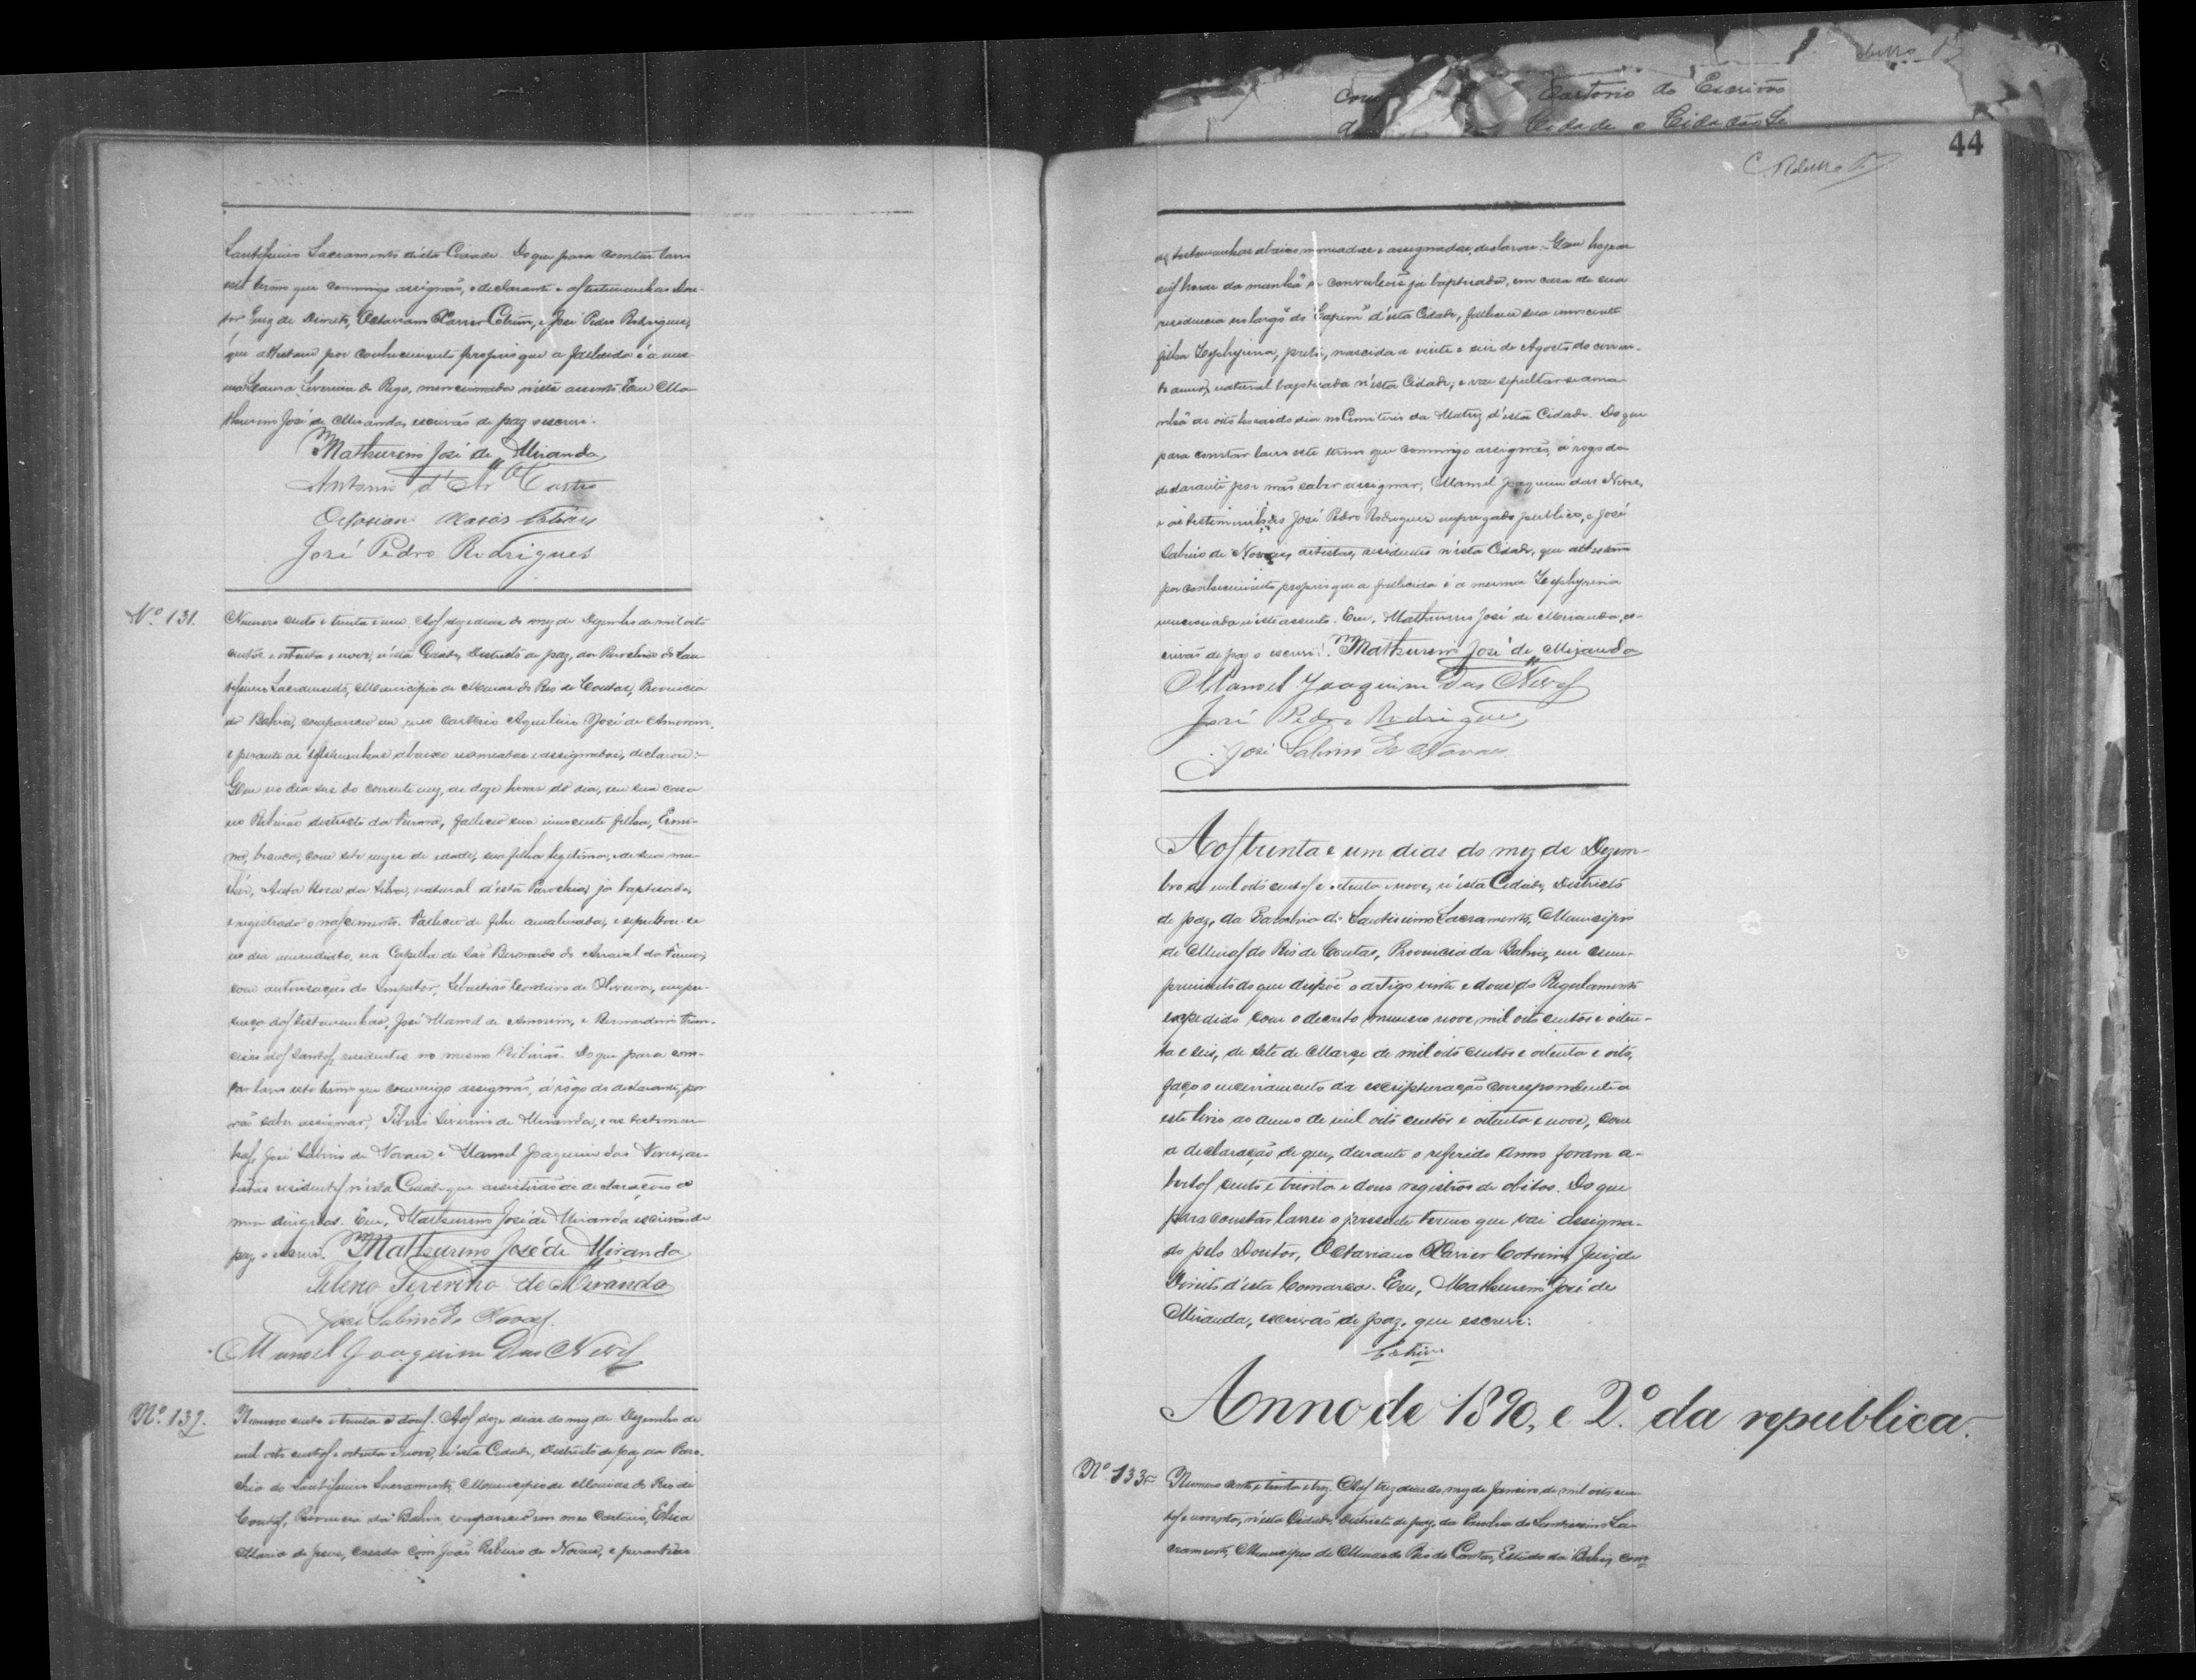 Santissimo Sacramento d'esta Cidade. Do que para constar lavro
este termo que commigo assignão, o declarante e as testemunhas Dou-
tor Juiz de Direito, Octaviano Xavier Cotrim, e José Pedro Rodrigues,
que attestão por conhecimento proprio que a fallecida é a mes-
ma Severina do Rego, mencionada n'este assento. Eu Ma-
thurino José de Miranda, escrivão de paz o escrevi.
Mathurino José de Miranda
Antonio d' Castro
Octaviano Xavier Cotrim
José Pedro Rodrigues
Nº 131.
Numero cento e trinta e um. Aos doze dias do mez de Dezembro de mil oito
centos e oitenta e nove, n'esta Cidade, Districto de paz, da Parochia do San-
tissimo Sacramento, Municipio de Minas do Rio de Contas, Provincia
da Bahia, compareceu em meu cartorio Aquilino José de Amorim,
e perante as testemunhas abaixo nomeadas e assignadas, declarou:
Que no dia seis do corrente mez, as doze horas do dia, em sua casa
no Ribeirão districto da Furna, falleceu sua innocente filha,
branca, com sete mezes de idade, sua filha legitima, e de sua mu-
lher, Rosa da Silva, natural d'esta Parochia, já baptisada,
e registrado o nascimento. Falleceu de febre, e sepultou-se
no dia immediato, na Capella de São Bernardo do Arraial da Furna,
com autorisação do Inspetor, Sebastião Cordeiro de Oliveira, em pre-
sença das testemunhas, José Manoel de Amorim, e Bernardino Fran-
cisco dos Santos, residentes no mesmo Ribeirão. Do que para cons-
tar lavro este termo que commigo assignão, á rôgo do declarante, por
não saber assignar, Severino de Miranda, e as testemu-
nhas, José Sabino de Novaes e Manoel Joaquim das Neves, ar-
tistas residentes n'esta Cidade que assistirão as declarações a
mim dirigidas. Eu, Mathurino José de Miranda escrivão de
paz o escrevi. Mathurino José de Miranda
Severino de Miranda
José Sabino de Novaes.
Manoel Joaquim Das Neves
Nº 132.
Numero cento e trinta e dous. Aos doze dias do mez de Dezembro de
mil oito centos e oitenta e nove, n'esta Cidade, Districto de paz da Paro-
chia do Santissimo Sacramento, Municipio de Minas do Rio de
Contas, Provincia da Bahia compareceu em meu Cartorio,
Maria de Jesus, casada com João Ribeiro de Novaes, e perante
Cartorio do Escrivão
Cidade o Cidadão
44
as testemunhas abaixo nomeadas e assignadas, declarou: Que hoje as
seis horas da manhã de convulsões já baptisada, em casa de sua
residencia no largo do "Capim" d'esta Cidade, falleceu sua innocente
filha Zephyrina, preta, nascida a vinte e seis de Agosto do corren-
te anno, natural baptisada n'esta Cidade; e vae sepultar-se ama-
nhã as oito horas do dia no Cemiterio da Matriz d'esta Cidade. Do que
para constar lavro este termo que commigo assignão, á rogo da
declarante por não saber assignar, Manoel Joaquim das Neves,
e as testemunhas José Pedro Rodrigues empregado publico, e José
Sabino de Novaes, artistas, residentes n'esta Cidade, que attestão
por conhecimento proprio que a fallecida é a mesma Zephyrina
mencionada n'este assento. Eu, Mathurino José de Miranda, es-
crivão de paz o escrevi. Mathurino José de Miranda
Manoel Joaquim Das Neves
José Pedro Rodrigues
José Sabino de Novaes
Aos trinta e um dias do mez de Dezem-
bro de mil oito centos e oitenta e nove, n'esta Cidade, Districto
de paz, da Parochia do Santissimo Sacramento, Municipio
de Minas do Rio de Contas, Provincia da Bahia, em cum-
primento do que dispõe o artigo vinte e dous do Regulamento
expedido com o decreto numero nove mil oito centos e oiten-
ta e seis, de sete de Março de mil oito centos e oitenta e oito,
faço o encerramento da escripturação correspondente a
este livro ao anno de mil oito centos e oitenta e nove, com
a declaração de que, durante o referido anno foram a-
bertos cento e trinta e dous registros de obitos. Do que
para constar lavrei o presente termo que vai assigna-
do pelo Doutor, Octaviano Xavier Cotrim, Juiz de
Direito d'esta Comarca. Eu, Mathurino José de
Miranda, escrivão de paz, que escrevi.
Cotrim
Anno de 1890, e 2.º da republica.
Nº 133
Numero cento e trinta e trez. Aos trez dias do mez de Janeiro de mil oito cen-
tos e noventa, n'esta Cidade, Districto de paz, da Parochia do Santissimo Sa-
cramento, Municipio de Minas do Rio de Contas, Estado da Bahia, com-